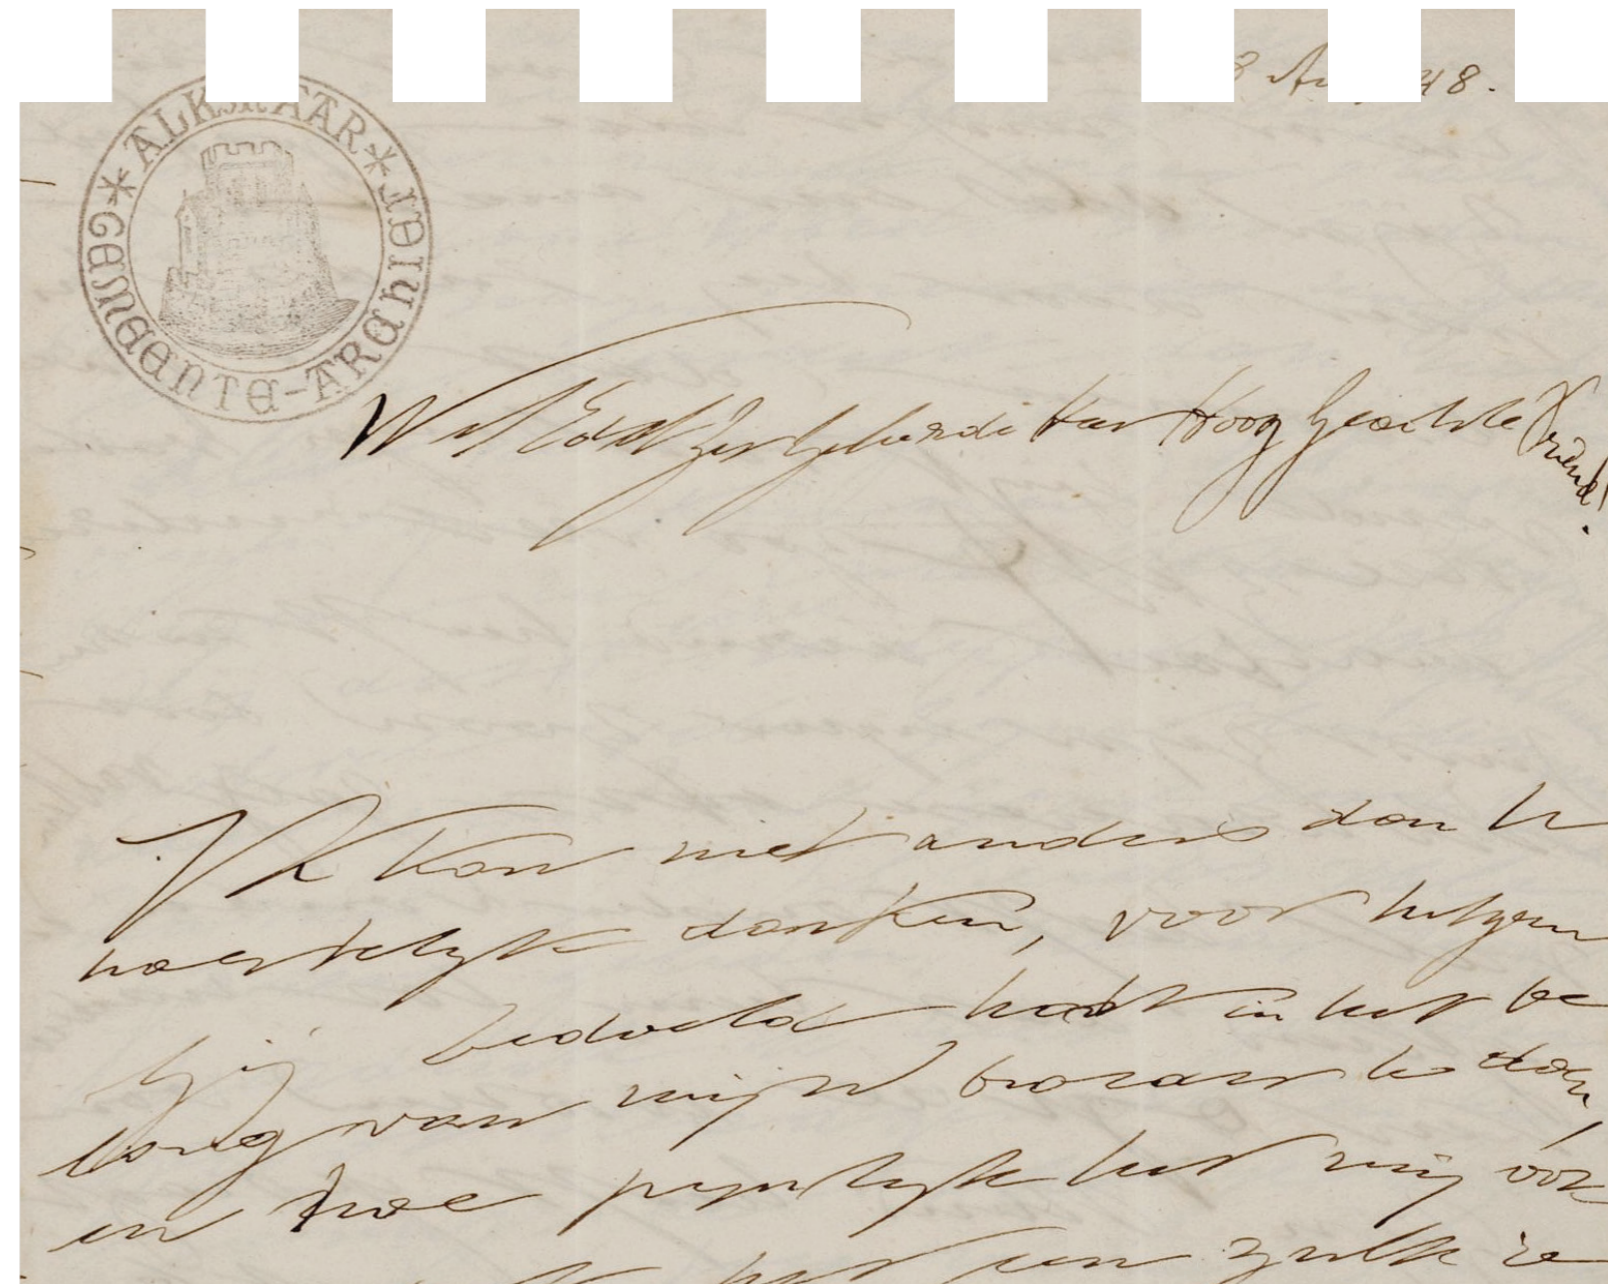 8 Au 48.
ALKMAAR
GEMEENTE-ARCHIEF
Wel Edel Zer Geleerde Heer Hoog Geachte Vriend!
Ik kan niet anders dan U
hartelijk danken, voor hetgeen
Gij bedoeld hadt in het be
lang van mijn
en hoe pijnlijk het mij ook
een zulk